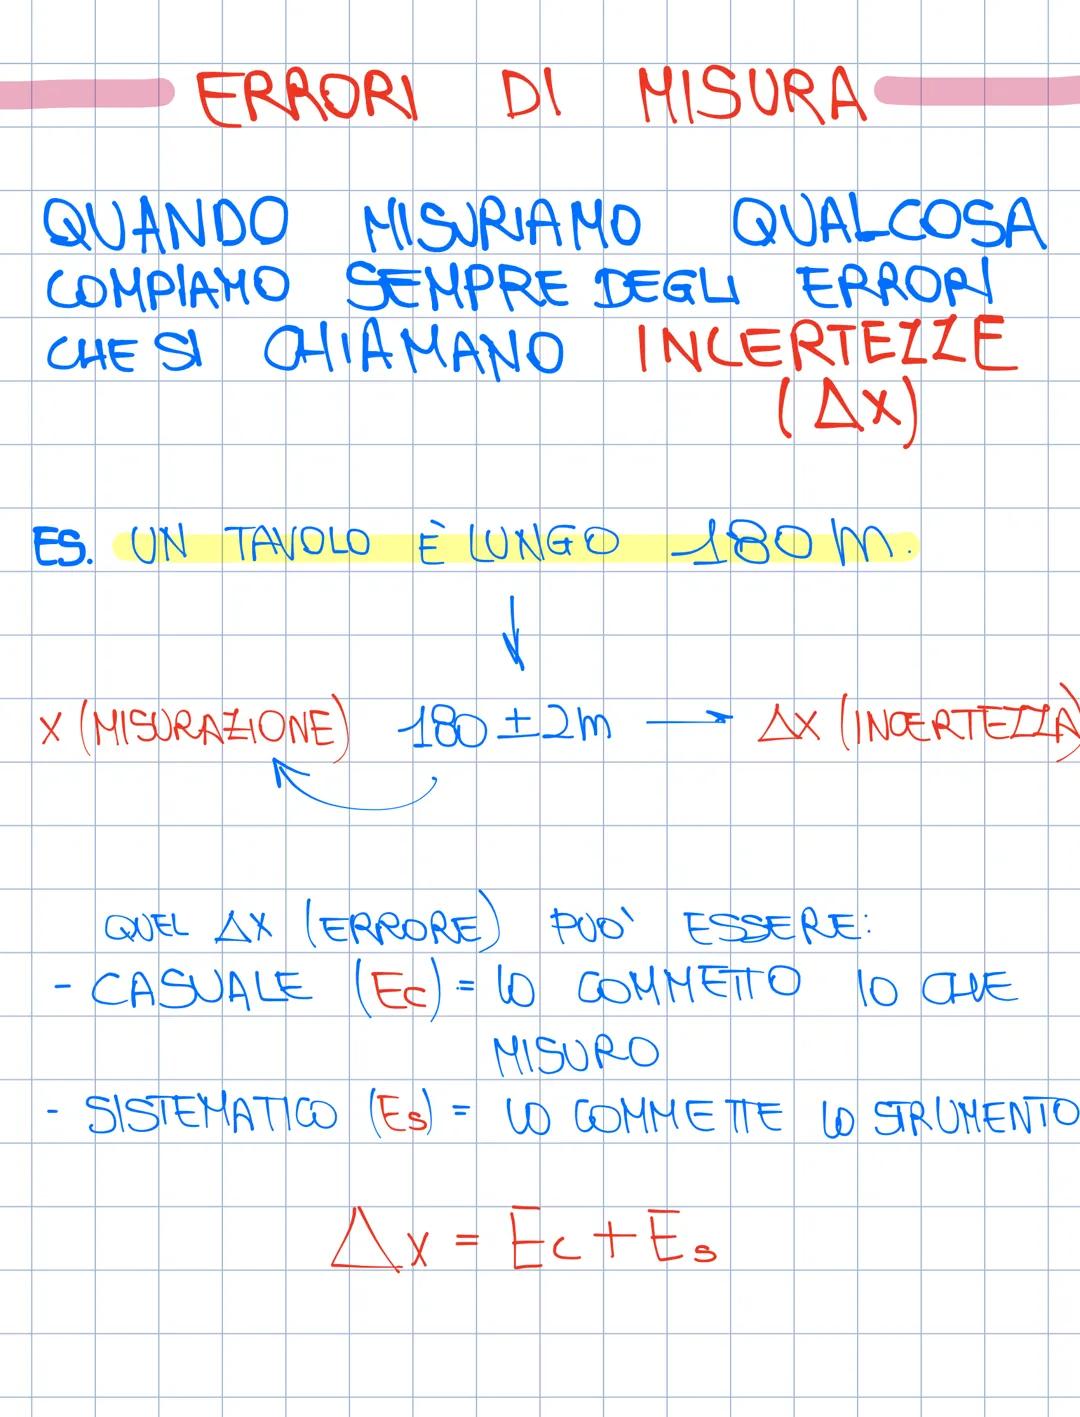 ERRORI DI MISURA
QUANDO MISURIAMO QUALCOSA
COMPIAMO SEMPRE DEGLI ERRORI
CHE SI CHIAMANO INCERTEZZE
(Δx)
ES. UN TAVOLO È LUNGO 180 m.
x (MISURAZIONE) 180 ± 2m → Δx (INCERTEZZA)
QUEL Δx (ERRORE) PUO' ESSERE:
- CASUALE (Ec) = LO COMMETTO IO CHE
MISURO
- SISTEMATICO (Es) = LO COMMETTE LO STRUMENTO
Δx = Ec + Es